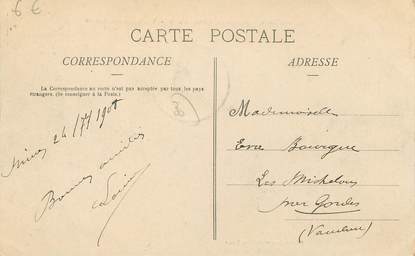 6 €
CARTE POSTALE
CORRESPONDANCE
ADRESSE
La Correspondance au recto n'est pas acceptée par tous les pays
étrangers. (Se renseigner à la Poste.)
Mademoiselle
Eva Bourgue
Les Michelons
par Gordes
(Vaucluse)
Nîmes 24/7/1908
Bonnes amitiés